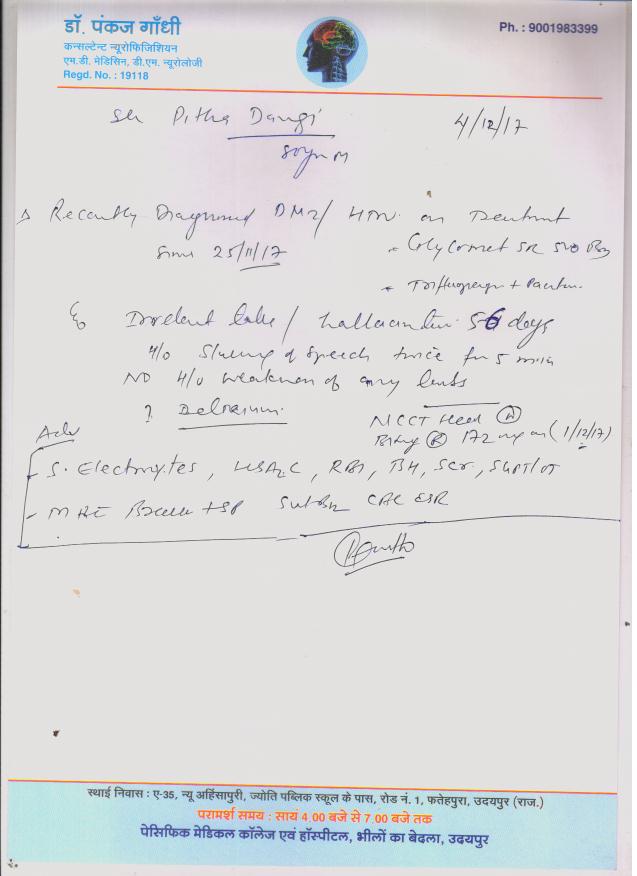 डॉ. पंकज गाँधी
कन्सल्टेन्ट न्यूरोफिजिशियन
एम.डी. मेडिसिन, डी.एम. न्यूरोलोजी
Regd. No. : 19118
Ph. : 9001983399
Pitha Dangi
4/12/17
M
Recently Diagnosed DM2/ HTN on Treatment
since 25/11/17
Glycomet SR 500
talk / hallucination 5-6 days
H/o Slurring of speech twice for 5 mins
NO H/o weakness of any limbs
? Delirium
NCCT Head (N)
172 mg on (1/12/17)
Adv
- S. Electrolytes, HbA1C, RBS, B4, SCr, SGPT/OT
- MRI Brain CBC ESR
स्थाई निवास : ए-35, न्यू अहिंसापुरी, ज्योति पब्लिक स्कूल के पास, रोड नं. 1, फतेहपुरा, उदयपुर (राज.)
परामर्श समय : सायं 4.00 बजे से 7.00 बजे तक
पेसिफिक मेडिकल कॉलेज एवं हॉस्पीटल, भीलों का बेदला, उदयपुर